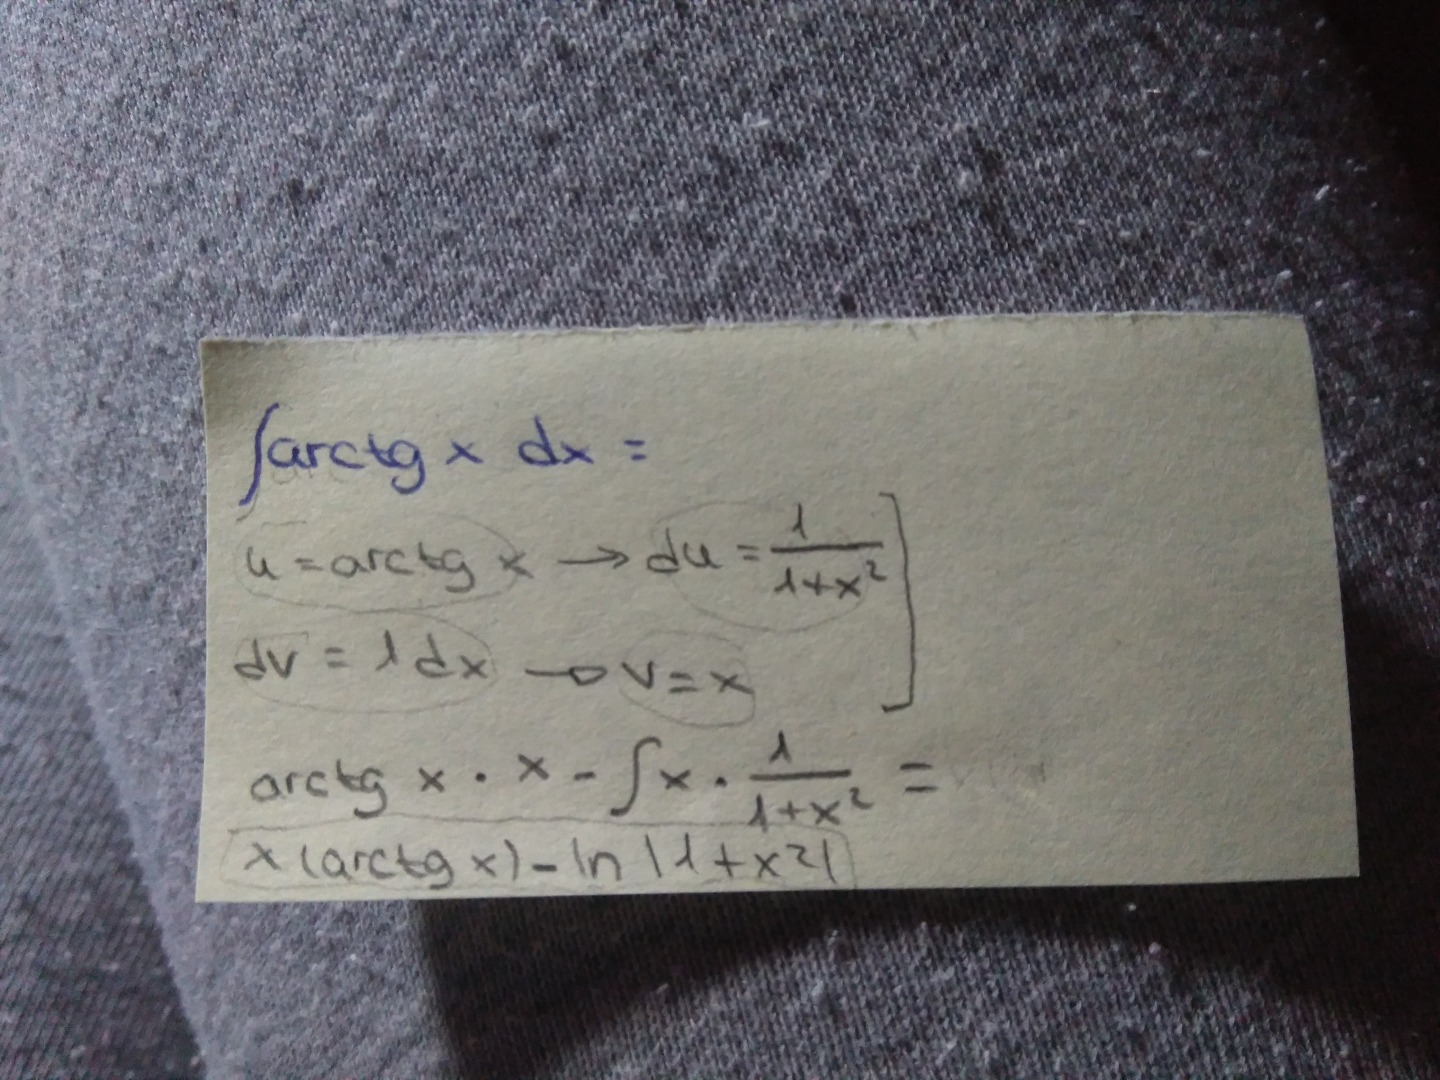 ∫arctg x dx =
u = arctg x → du = 1/(1+x²)
dv = 1 dx → v = x
arctg x · x - ∫x · 1/(1+x²) =
x (arctg x) - ln |1+x²|